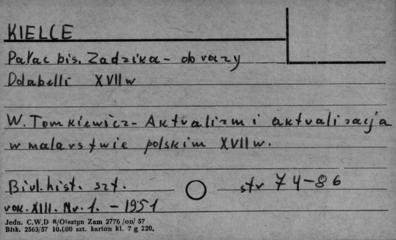 KIELCE
Pałac bis. Zadzika - obrazy
Dolabelli XVII w
W. Tomkiewicz - Aktualizm i aktualizacja
w malarstwie polskim XVII w.
Biul. hist. szt. str 74-86
rok. XIII. Nr. 1. - 1951
Jedn. C.W.D R/Olsztyn Zam 2776 /on/ 57
Bluk. 2563/57 10.000 szt. karton kl. 7 g 220.